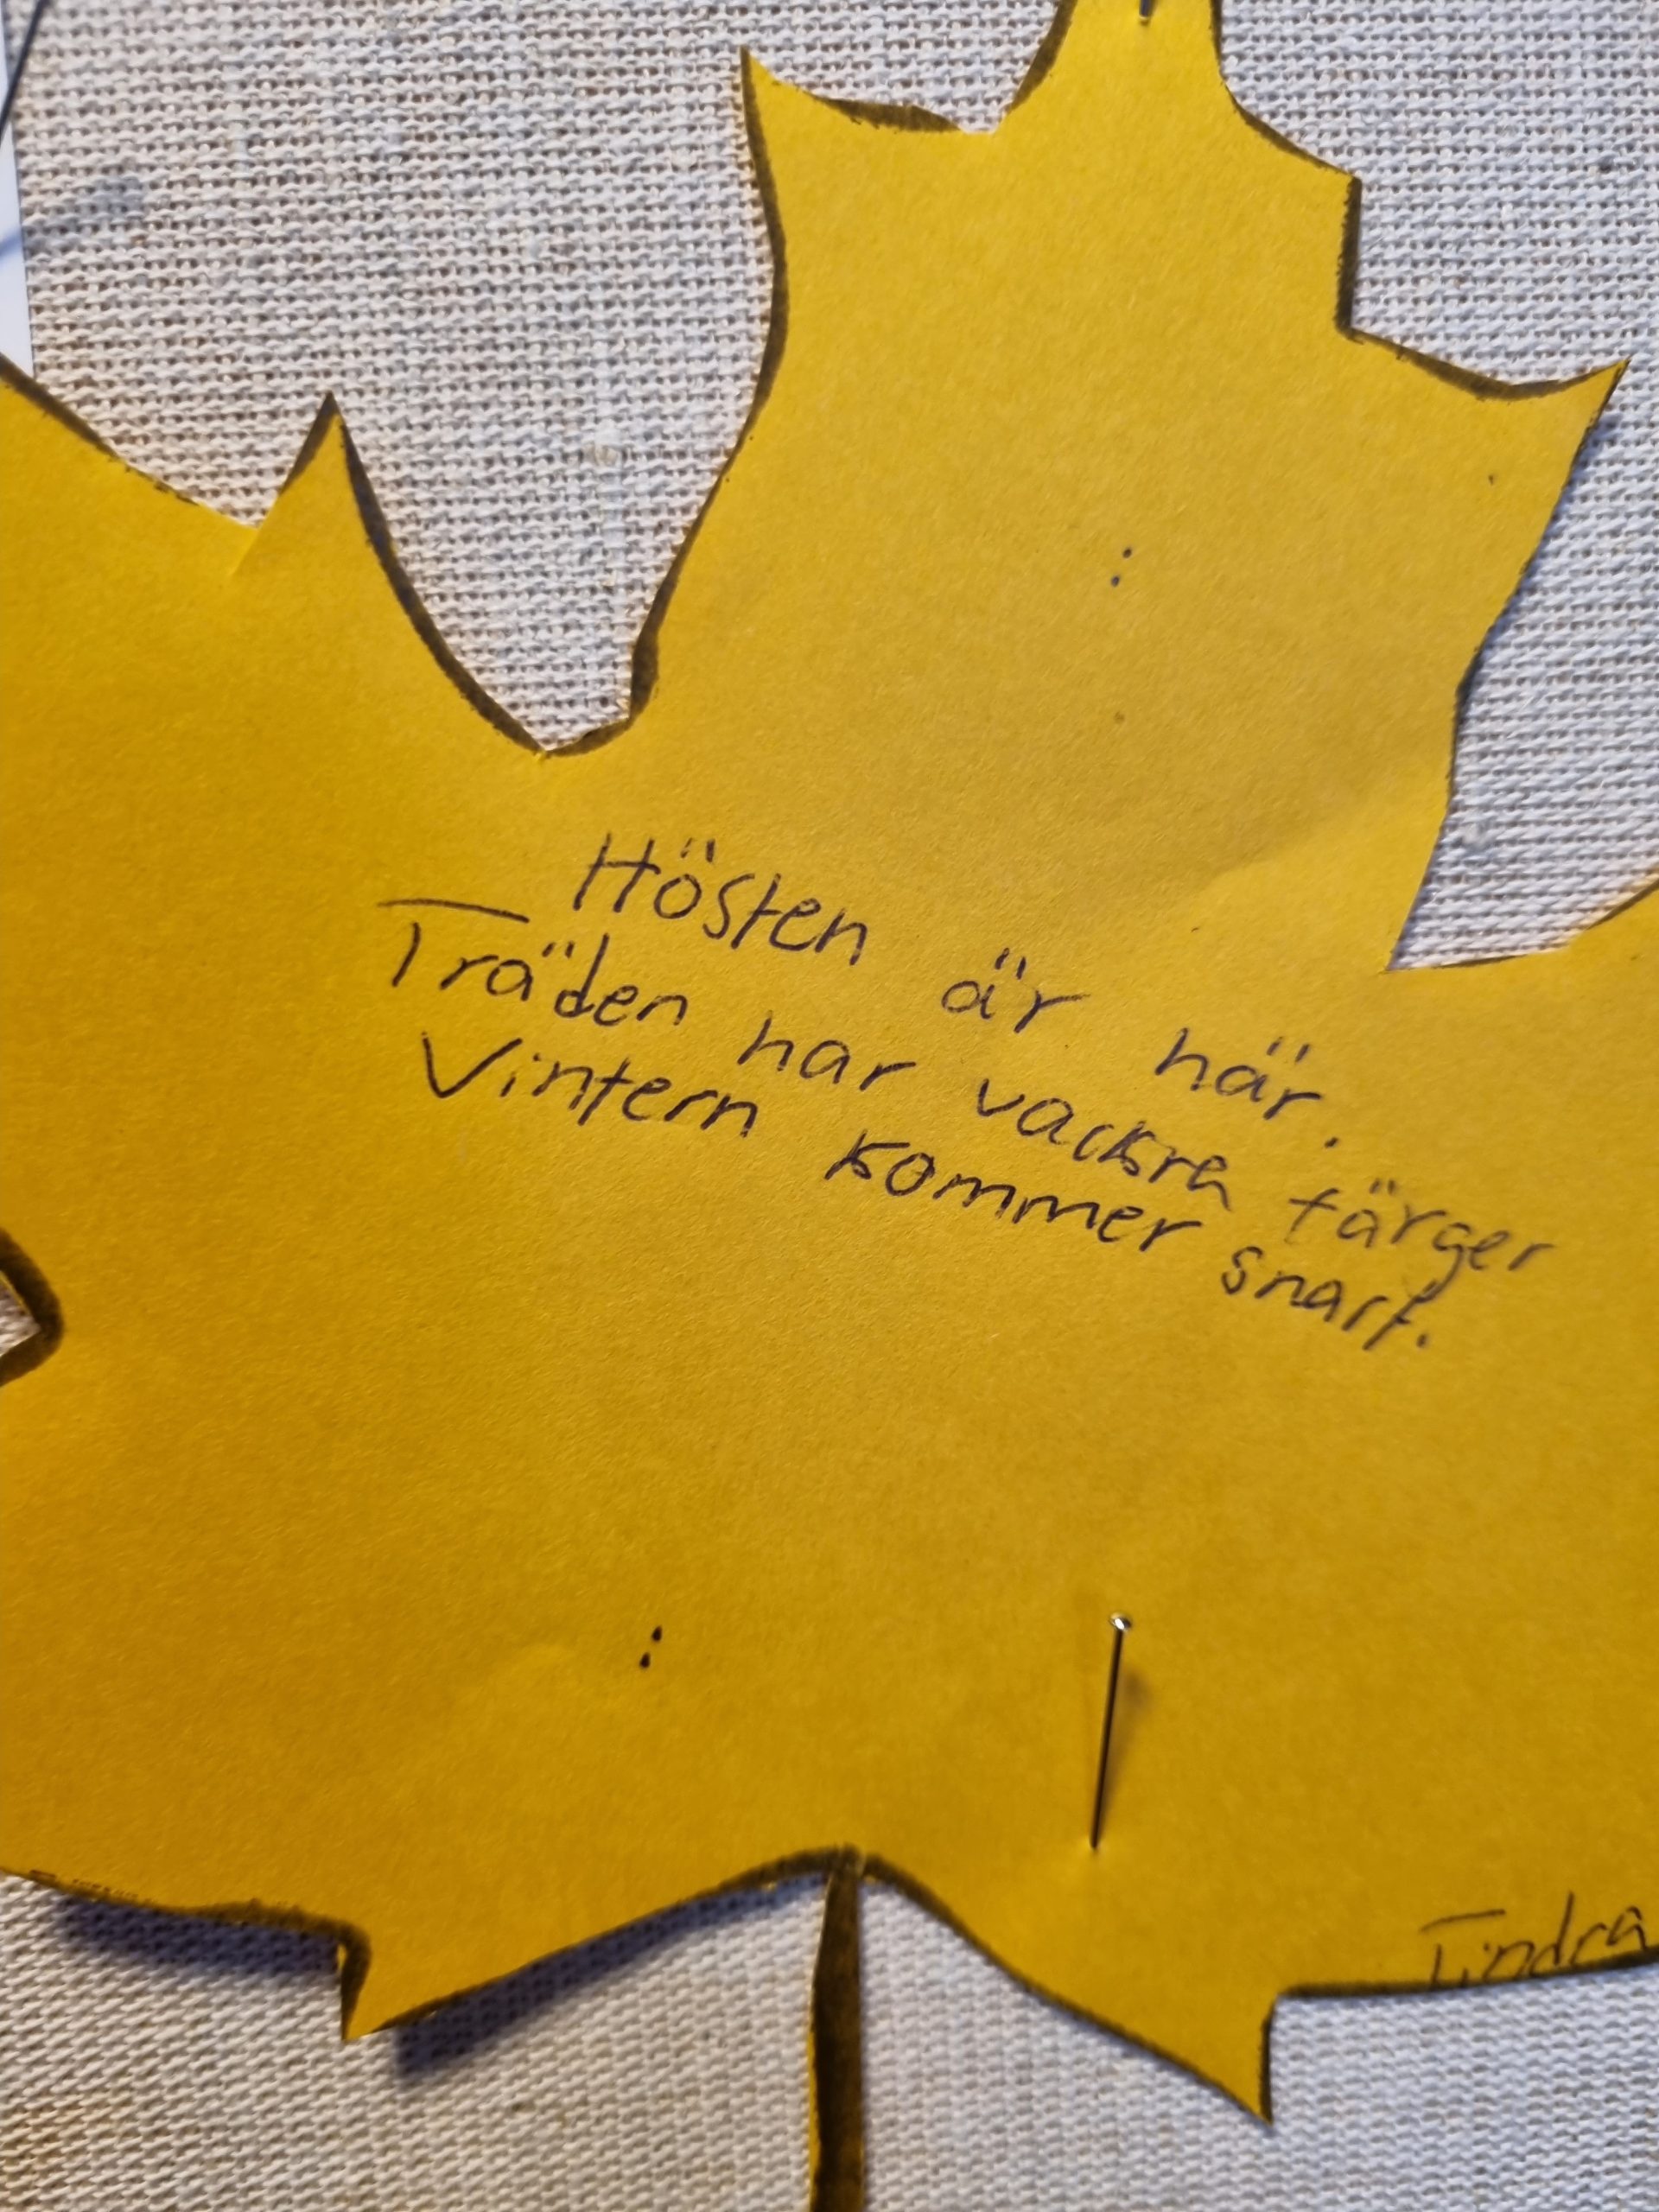 Hösten är här.
Träden har vackra färger
Vintern kommer snart.
Tindra